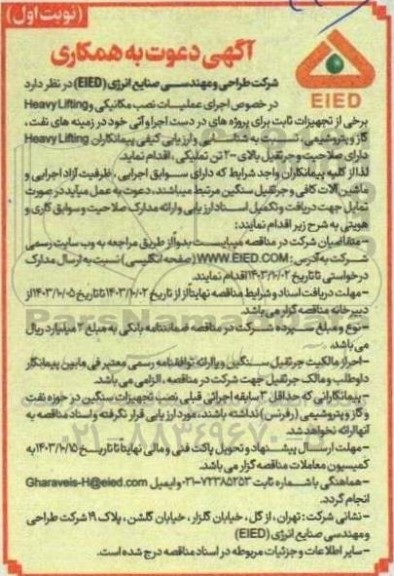 (نوبت اول)
آگهی دعوت به همکاری
EIED
شرکت طراحی و مهندسی صنایع انرژی (EIED) در نظر دارد
در خصوص اجرای عملیات نصب مکانیکی و Heavy Lifting
برخی از تجهیزات ثابت برای پروژه های در دست اجرا و آتی خود در زمینه های نفت،
گاز و پتروشیمی، نسبت به شناسایی و ارزیابی کیفی پیمانکاران Heavy Lifting
دارای صلاحیت و جرثقیل بالای ۲۰۰ تن تملیکی، اقدام نماید.
لذا از کلیه پیمانکاران واجد شرایط که دارای سوابق اجرایی، ظرفیت آزاد اجرایی و
ماشین آلات کافی و جرثقیل سنگین مرتبط میباشند، دعوت به عمل میآید در صورت
تمایل جهت دریافت و تکمیل اسناد ارزیابی و ارائه مدارک صلاحیت و سوابق کاری و
هویتی به شرح زیر اقدام نمایند:
- متقاضیان شرکت در مناقصه میبایست بدواً از طریق مراجعه به وب سایت رسمی
شرکت به آدرس: WWW.EIED.COM (صفحه انگلیسی) نسبت به ارسال مدارک
درخواستی تا تاریخ ۱۴۰۳/۱۰/۰۲ اقدام نمایند.
- مهلت دریافت اسناد و شرایط مناقصه نهایتاً از تاریخ ۱۴۰۳/۱۰/۰۲ تا تاریخ ۱۴۰۳/۱۰/۰۵ از
دبیرخانه مناقصه گزار می باشد.
- نوع و مبلغ سپرده شرکت در مناقصه ضمانتنامه بانکی به مبلغ ۲ میلیارد ریال
می باشد.
- احراز مالکیت جرثقیل سنگین و یا ارائه توافقنامه رسمی معتبر فی مابین پیمانکار
داوطلب و مالک جرثقیل جهت شرکت در مناقصه، الزامی می باشد.
- پیمانکارانی که حداقل ۳ سابقه اجرائی قبلی نصب تجهیزات سنگین در حوزه نفت
و گاز و پتروشیمی (رفرنس) نداشته باشند، مورد ارزیابی قرار نگرفته و اسناد مناقصه به
آنها ارائه نخواهد شد.
- مهلت ارسال پیشنهاد و تحویل پاکت فنی و مالی نهایتاً تا تاریخ ۱۴۰۳/۱۰/۱۵ به
کمیسیون معاملات مناقصه گزار می باشد.
- هماهنگی با شماره ثابت ۷۲۳۸۵۲۵۳-۰۲۱ و ایمیل Gharaveis-H@eied.com
انجام گردد.
- نشانی شرکت: تهران، ازگل، خیابان گلزار، خیابان گلشن، پلاک ۱۹ شرکت طراحی
و مهندسی صنایع انرژی (EIED)
- سایر اطلاعات و جزئیات مربوطه در اسناد مناقصه درج شده است.
ParsNamad
۰۲۱-۸۸۳۴۹۶۷۰